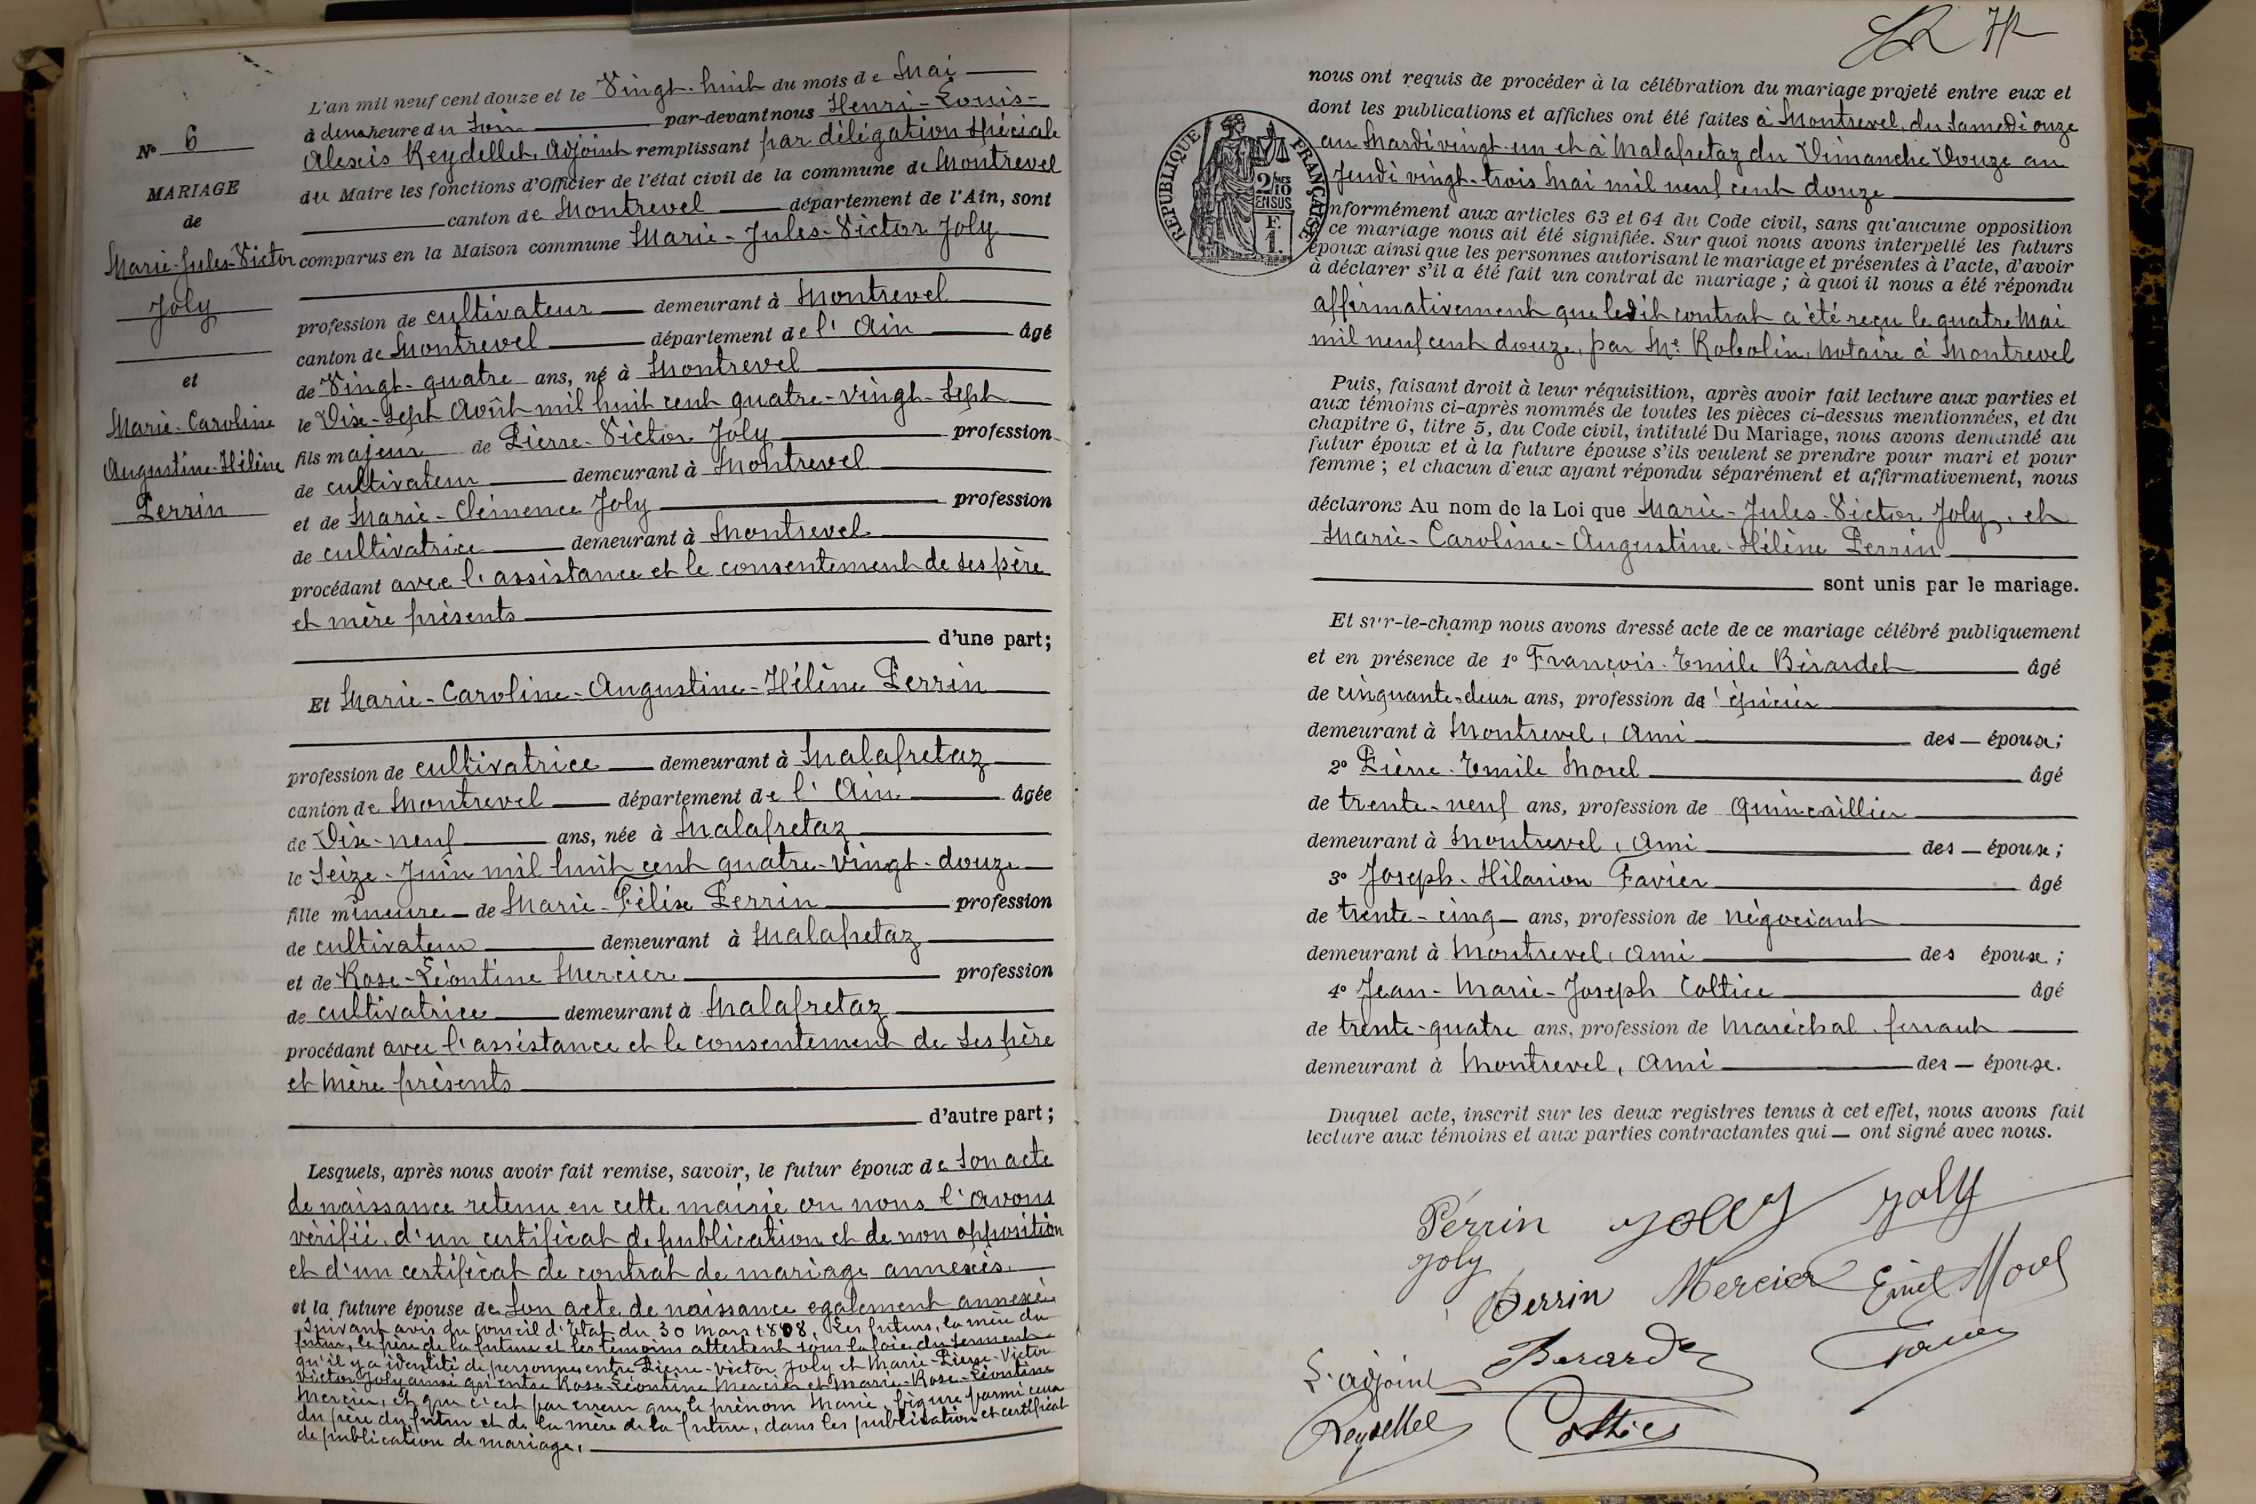 N° 6
MARIAGE
de
Marie-Jules-Victor
Joly
et
Marie-Caroline
Augustine-Hélène
Perrin
L'an mil neuf cent douze et le Vingt-huit du mois de Mai
à deux heure du Soir par-devant nous Henri-Louis-
Alexis Reydellet, Adjoint remplissant par délégation spéciale
du Maire les fonctions d'Officier de l'état civil de la commune de Montrevel
canton de Montrevel département de l'Ain, sont
comparus en la Maison commune Marie-Jules-Victor Joly
profession de cultivateur demeurant à Montrevel
canton de Montrevel département de l'Ain âgé
de Vingt-quatre ans, né à Montrevel
le Dix-Sept Août mil huit cent quatre-vingt-Sept
fils majeur de Pierre-Victor Joly profession
de cultivateur demeurant à Montrevel
et de Marie-Clémence Joly profession
de cultivatrice demeurant à Montrevel
procédant avec l'assistance et le consentement de ses père
et mère présents
d'une part;
Et Marie-Caroline-Augustine-Hélène Perrin
profession de cultivatrice demeurant à Malafretaz
canton de Montrevel département de l'Ain âgée
de Dix-neuf ans, née à Malafretaz
le Seize-Juin mil huit cent quatre-vingt-douze
fille mineure de Marie-Félix Perrin profession
de cultivateur demeurant à Malafretaz
et de Rose-Léontine Mercier profession
de cultivatrice demeurant à Malafretaz
procédant avec l'assistance et le consentement de ses père
et mère présents
d'autre part;
Lesquels, après nous avoir fait remise, savoir, le futur époux de Son acte
de naissance retenu en cette mairie ou nous l'avons
vérifié, d'un certificat de publication et de non opposition
et d'un certificat de contrat de mariage annexés.
et la future épouse de Son acte de naissance egalement annexé.
Suivant avis du conseil d'Etat du 30 mars 1808, Les futurs, la mère du
futur, le père de la future et les témoins attestent sous la foi du serment
qu'il y a identité de personnes entre Pierre-Victor Joly et Marie-Pierre-Victor
Victor Joly ainsi qu'entre Rose-Léontine Mercier et Marie-Rose-Léontine
Mercier, et que c'est par erreur que le prénom Marie, figure parmi ceux
du père du futur et de la mère de la future, dans les publication et certificat
de publication de mariage.
nous ont requis de procéder à la célébration du mariage projeté entre eux et
dont les publications et affiches ont été faites à Montrevel, du Samedi onze
au Mardi vingt-un et à Malafretaz du Dimanche Douze au
Jeudi vingt-trois Mai mil neuf cent douze
REPUBLIQUE FRANÇAISE
2/10
EN SUS
F.
1.
nformément aux articles 63 et 64 du Code civil, sans qu'aucune opposition
ce mariage nous ait été signifiée. Sur quoi nous avons interpellé les futurs
époux ainsi que les personnes autorisant le mariage et présentes à l'acte, d'avoir
à déclarer s'il a été fait un contrat de mariage ; à quoi il nous a été répondu
affirmativement que ledit contrat a été reçu le quatre Mai
mil neuf cent douze, par Me Robolin, notaire à Montrevel
Puis, faisant droit à leur réquisition, après avoir fait lecture aux parties et
aux témoins ci-après nommés de toutes les pièces ci-dessus mentionnées, et du
chapitre 6, titre 5, du Code civil, intitulé Du Mariage, nous avons demandé au
futur époux et à la future épouse s'ils veulent se prendre pour mari et pour
femme ; et chacun d'eux ayant répondu séparément et affirmativement, nous
déclarons Au nom de la Loi que Marie-Jules-Victor Joly, et
Marie-Caroline-Augustine-Hélène Perrin
sont unis par le mariage.
Et sur-le-champ nous avons dressé acte de ce mariage célébré publiquement
et en présence de 1° François-Emile Bérardet âgé
de cinquante-deux ans, profession de épicier
demeurant à Montrevel, Ami des époux;
2° Pierre-Emile Morel âgé
de trente-neuf ans, profession de Quincaillier
demeurant à Montrevel, Ami des époux;
3° Joseph-Hilarion Favier âgé
de trente-cinq ans, profession de négociant
demeurant à Montrevel, Ami des époux;
4° Jean-Marie-Joseph Cottice âgé
de trente-quatre ans, profession de Maréchal-ferrant
demeurant à Montrevel, Ami des époux.
Duquel acte, inscrit sur les deux registres tenus à cet effet, nous avons fait
lecture aux témoins et aux parties contractantes qui ont signé avec nous.
Perrin Joly Joly
Joly Perrin Mercier Emile Morel
L'adjoint Berardet Favier
Reydellet Cottice